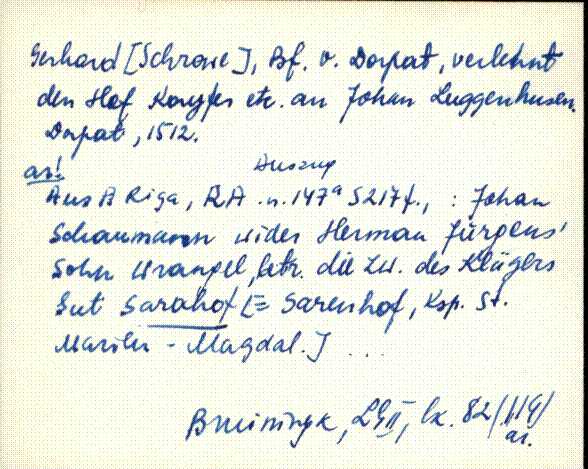 Gerhard [Schrowe], Bf. v. Dorpat, verlehnt
den Hof Kayfer etc. an Johan Luggenhusen.
Dorpat, 1512.
ar!
Auszug
Aus A Riga, RA. n. 147a S 217f., : Johan
Schaumann wider Herman Jürgens'
Sohn Wrangel, betr. die des Klägers
Gut Sarahof [= Sarenhof, Ksp. St.
Marien - Magdal.] ...
Bruiningk, LGU II, lx. 82/119/
ar.